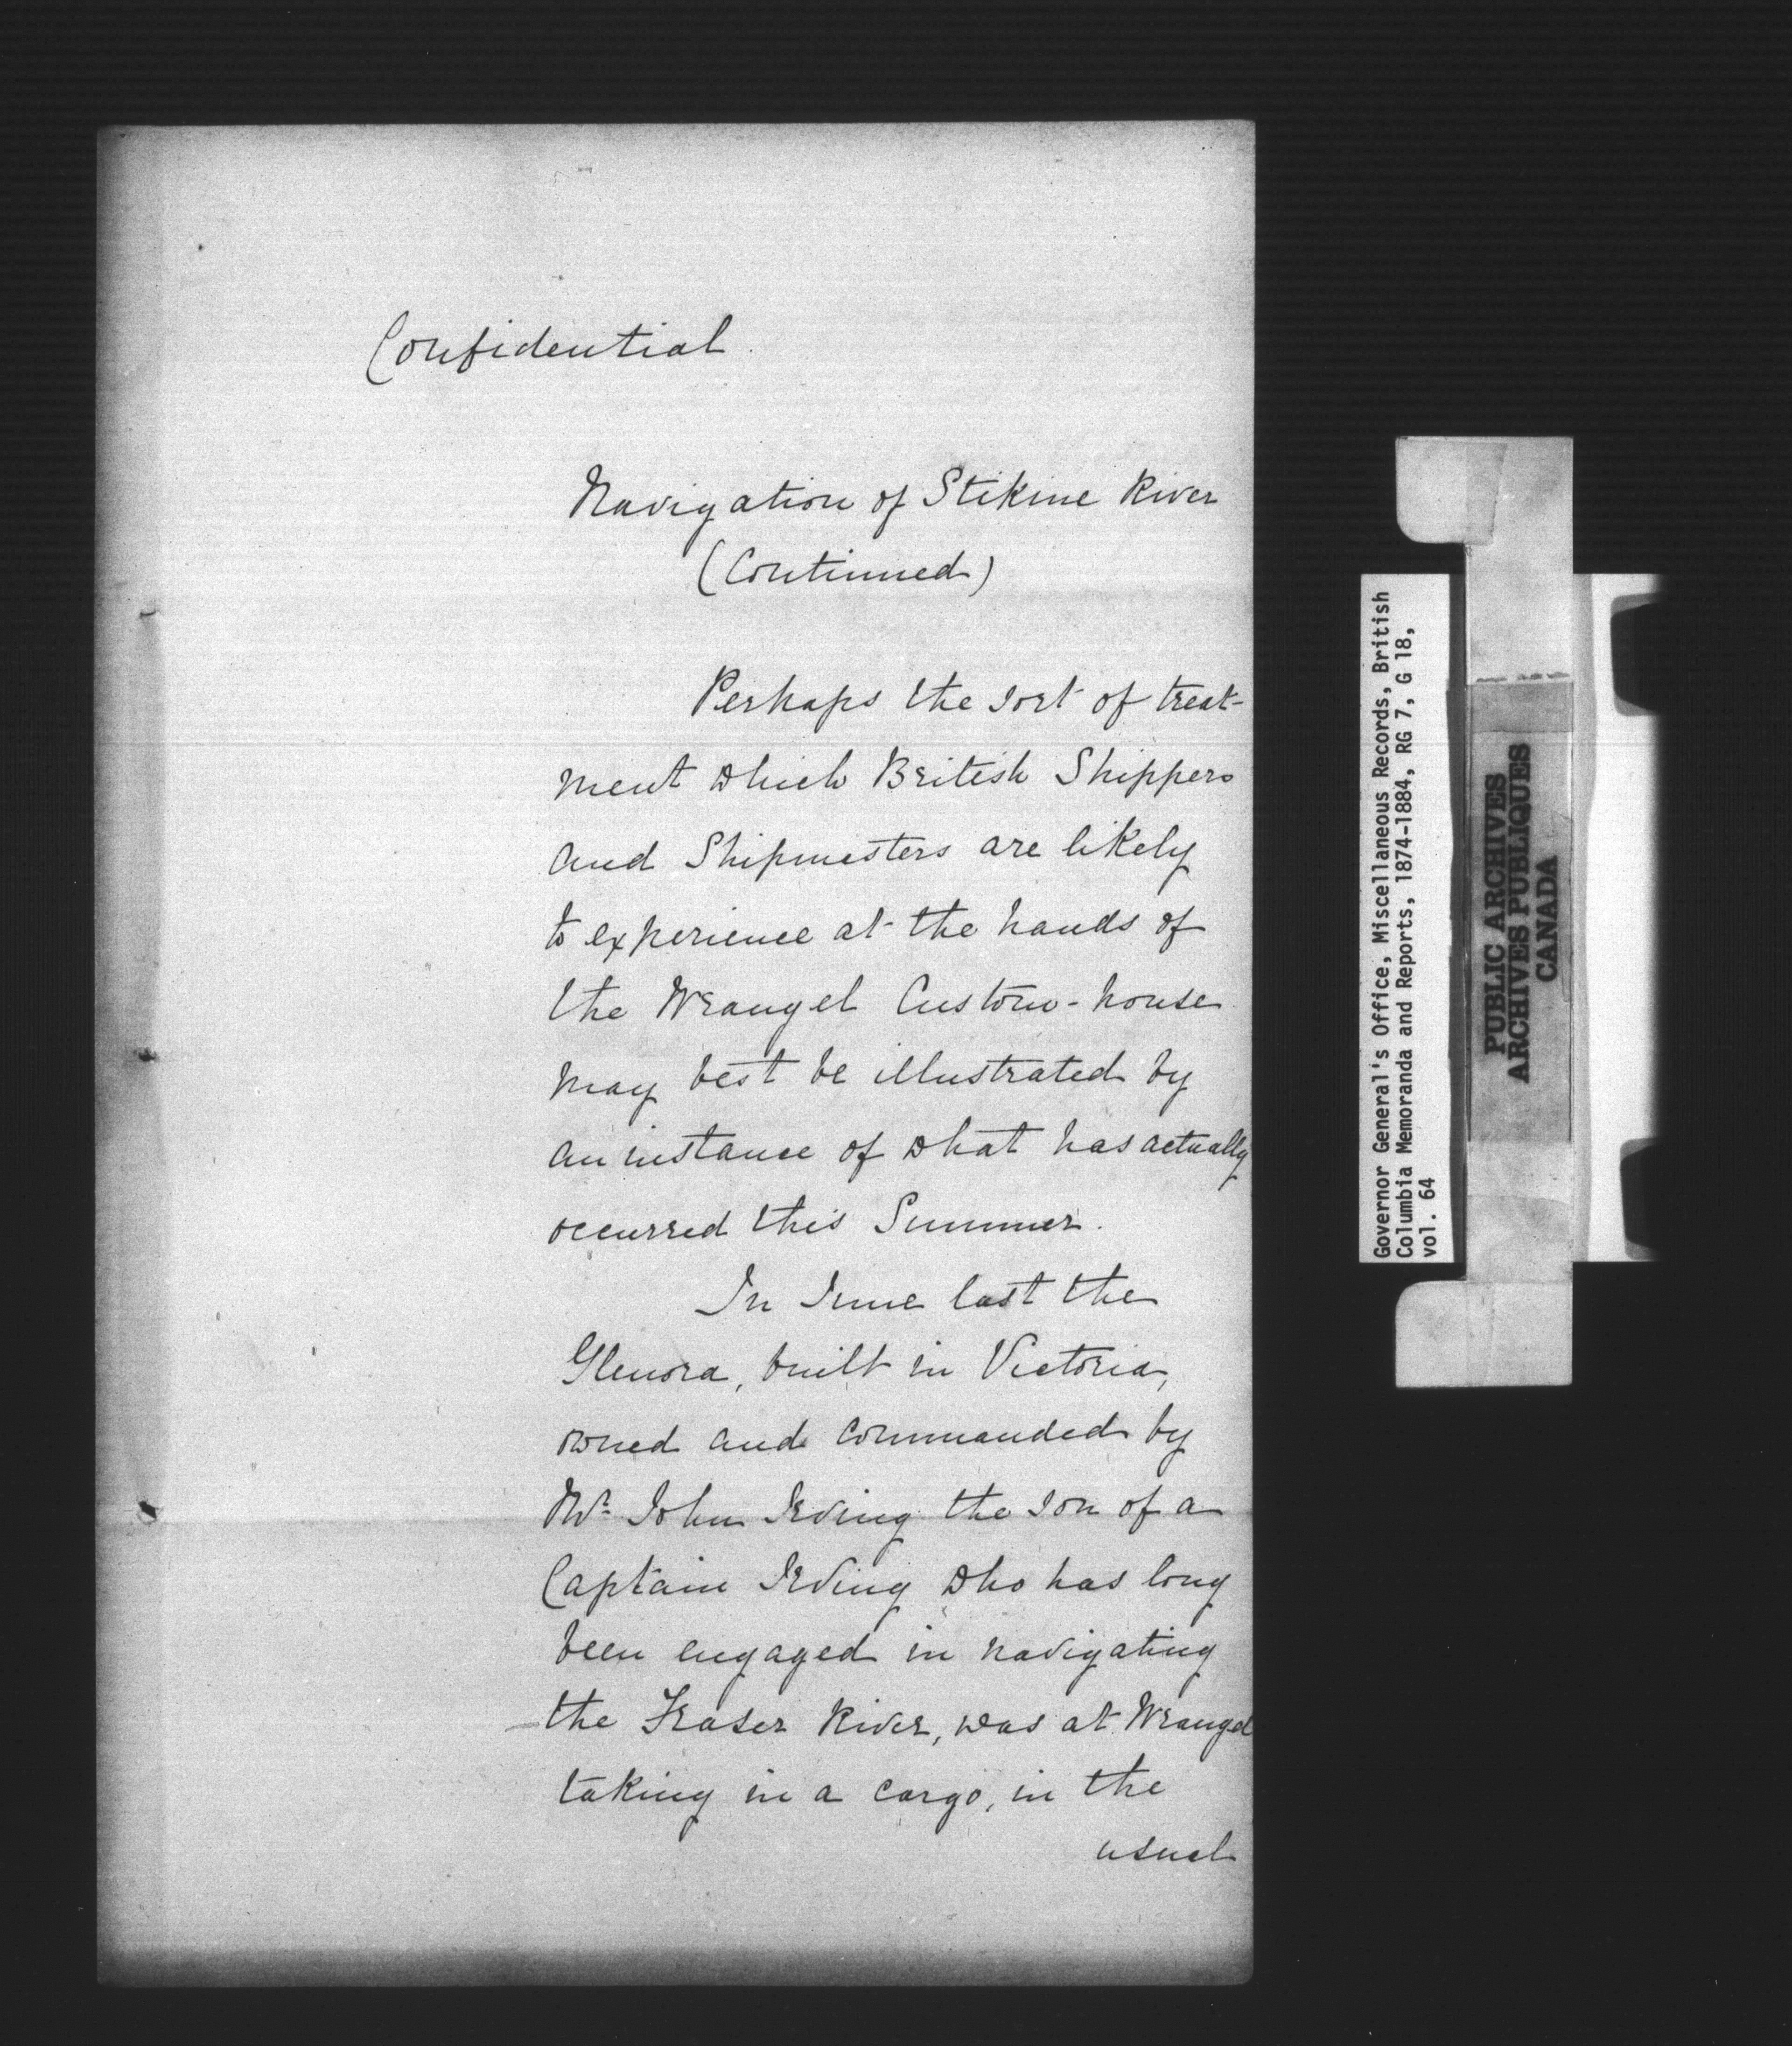 Confidential.
Navigation of Stikine River
(Continued)
Perhaps the sort of treat-
ment which British Shippers
and Shipmasters are likely
to experience at the hands of
the Wrangel Custom-house
may best be illustrated by
an instance of what has actually
occurred this Summer.
In June last the
Glenora, built in Victoria,
owned and commanded by
Mr. John Irving the son of a
Captain Irving who has long
been engaged in navigating
the Fraser River, was at Wrangel
taking in a cargo, in the
usual
Governor General's Office, Miscellaneous Records, British
Columbia Memoranda and Reports, 1874-1884, RG 7, G 18,
vol. 64
PUBLIC ARCHIVES
ARCHIVES PUBLIQUES
CANADA